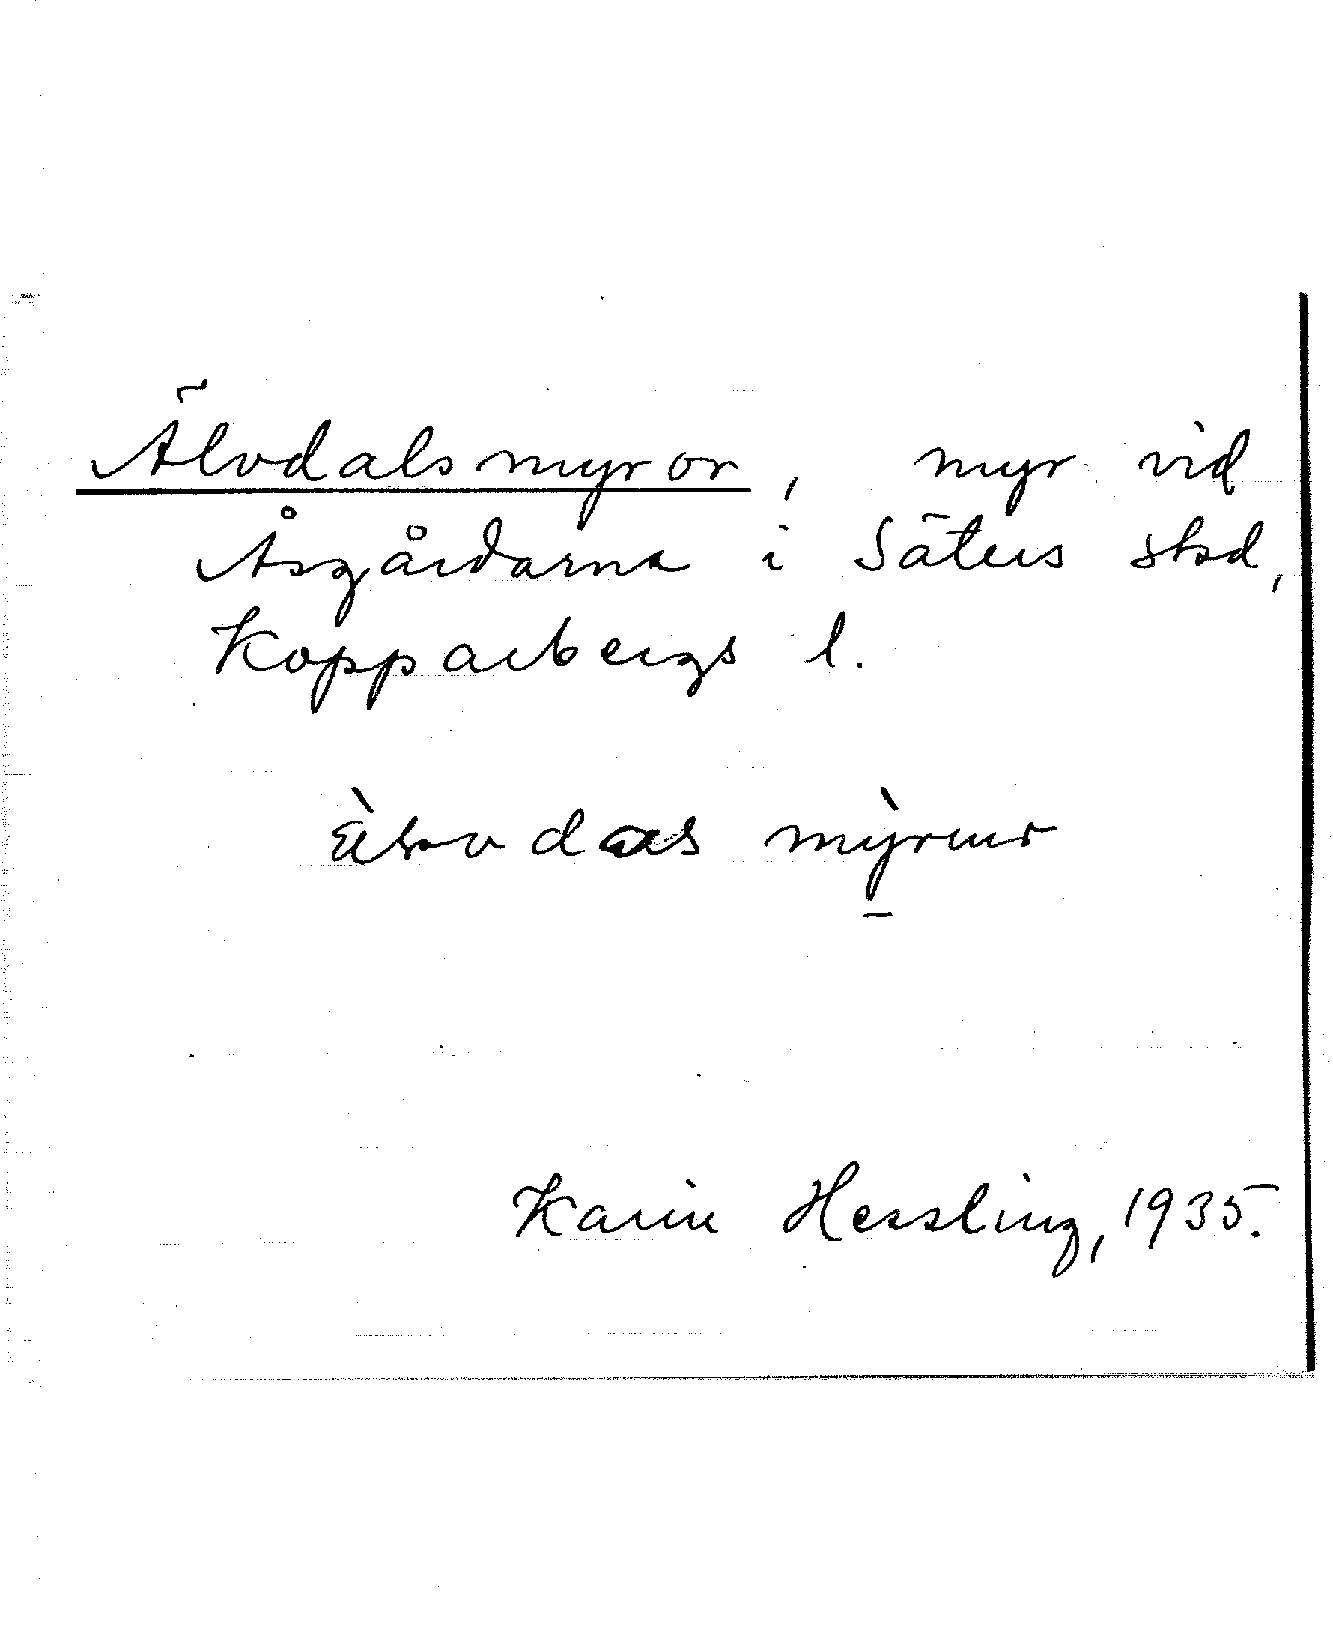 Älvdalsmyror, myr vid
Åsgårdarna i Säters stad,
Kopparbergs l.
Karin Hessling, 1935.